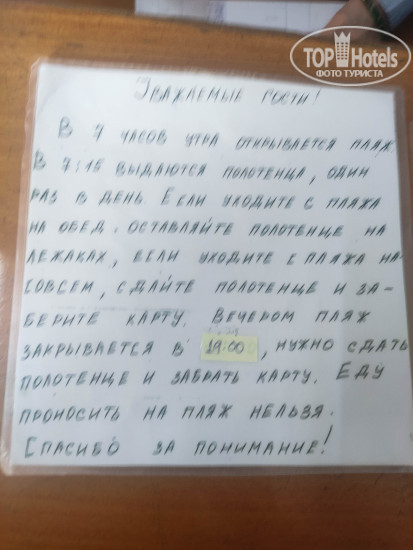 TOP Hotels
ФОТО ТУРИСТА
Уважаемые гости!
В 7 часов утра открывается пляж.
В 7:15 выдаются полотенца, один
раз в день. Если уходите с пляжа
на обед. оставляйте полотенце на
лежаках, если уходите с пляжа на-
совсем, сдайте полотенце и за-
берите карту. Вечером пляж
закрывается в 19:00, нужно сдать
полотенце и забрать карту. Еду
проносить на пляж нельзя.
Спасибо за понимание!